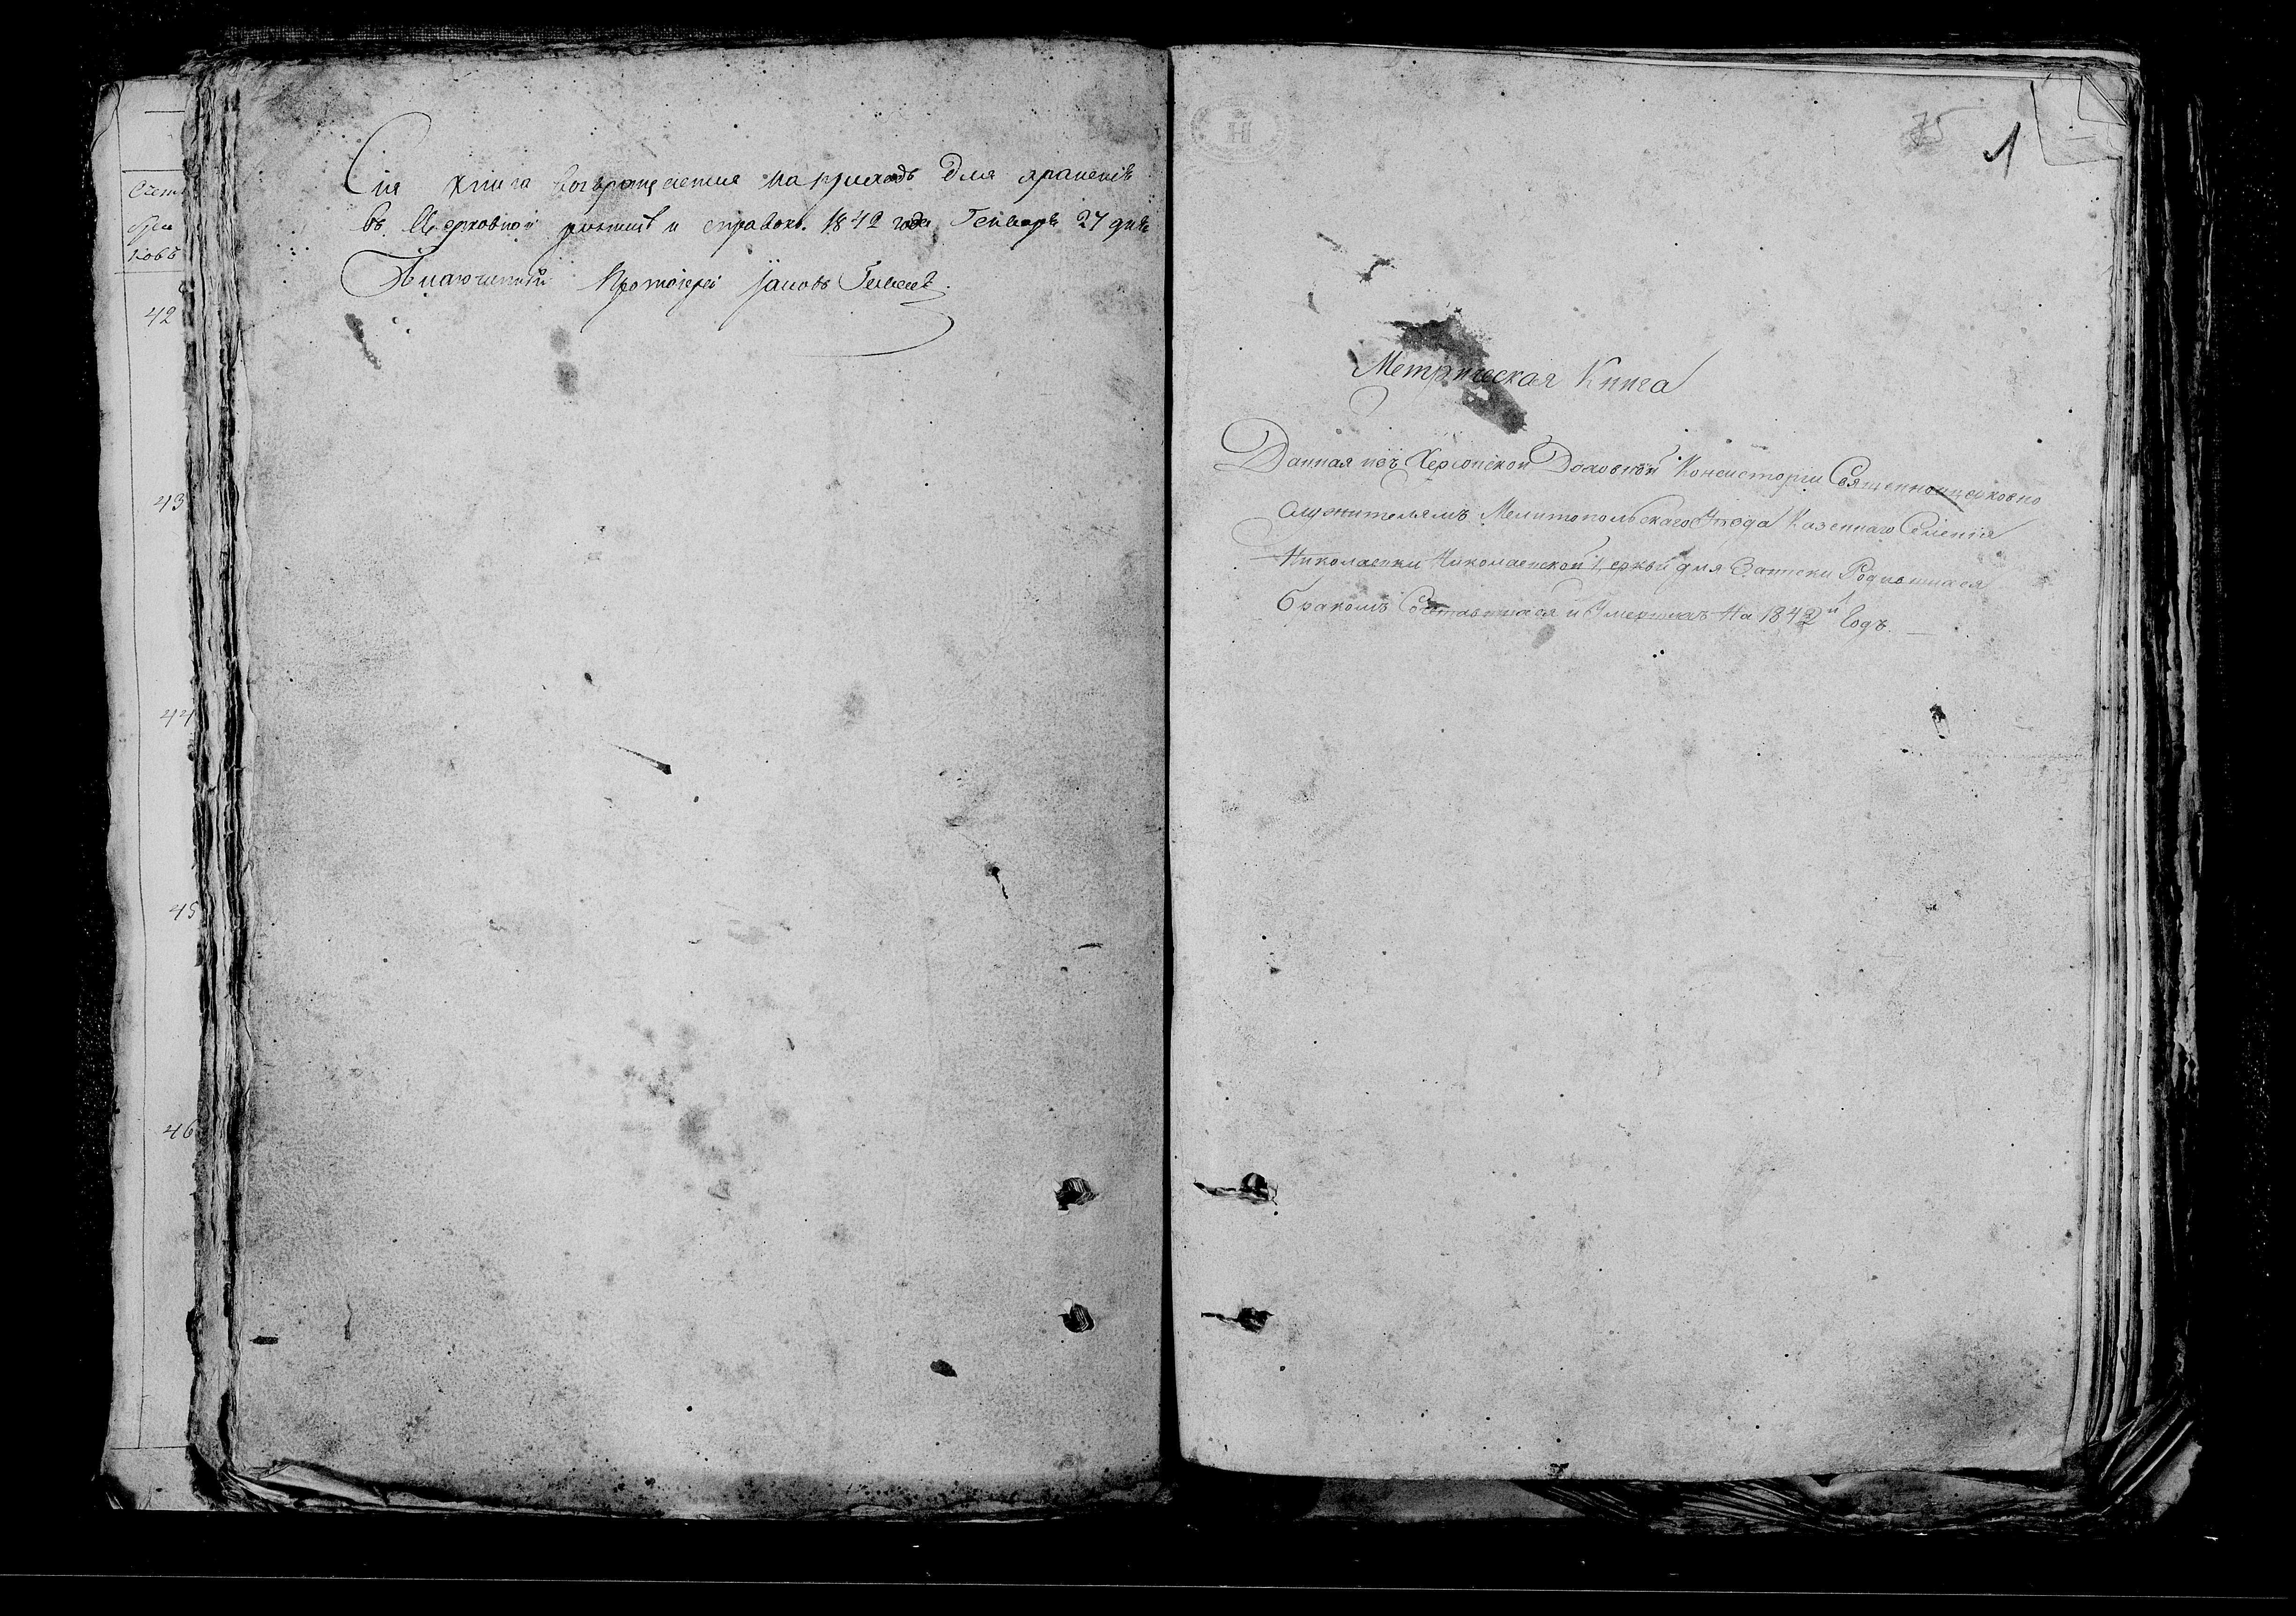 Счетъ
ковъ
42
43
44
45
46
Сія книга возвращается на приходъ для храненія
въ Церковной ризницѣ и справокъ. 1842 года Генваря 27 дня
Благочинный Протоіерей Іаковъ
75
1
Метрическая Книга
Данная изъ Херсонской Духовной Консисторіи Священноцерковно
служителямъ Мелитопольскаго Уѣзда Казеннаго Селенія
Николаевки Николаевской Церкви для Записки Родившихся
бракомъ Сочетавшихся и Умершихъ На 1842й Годъ.